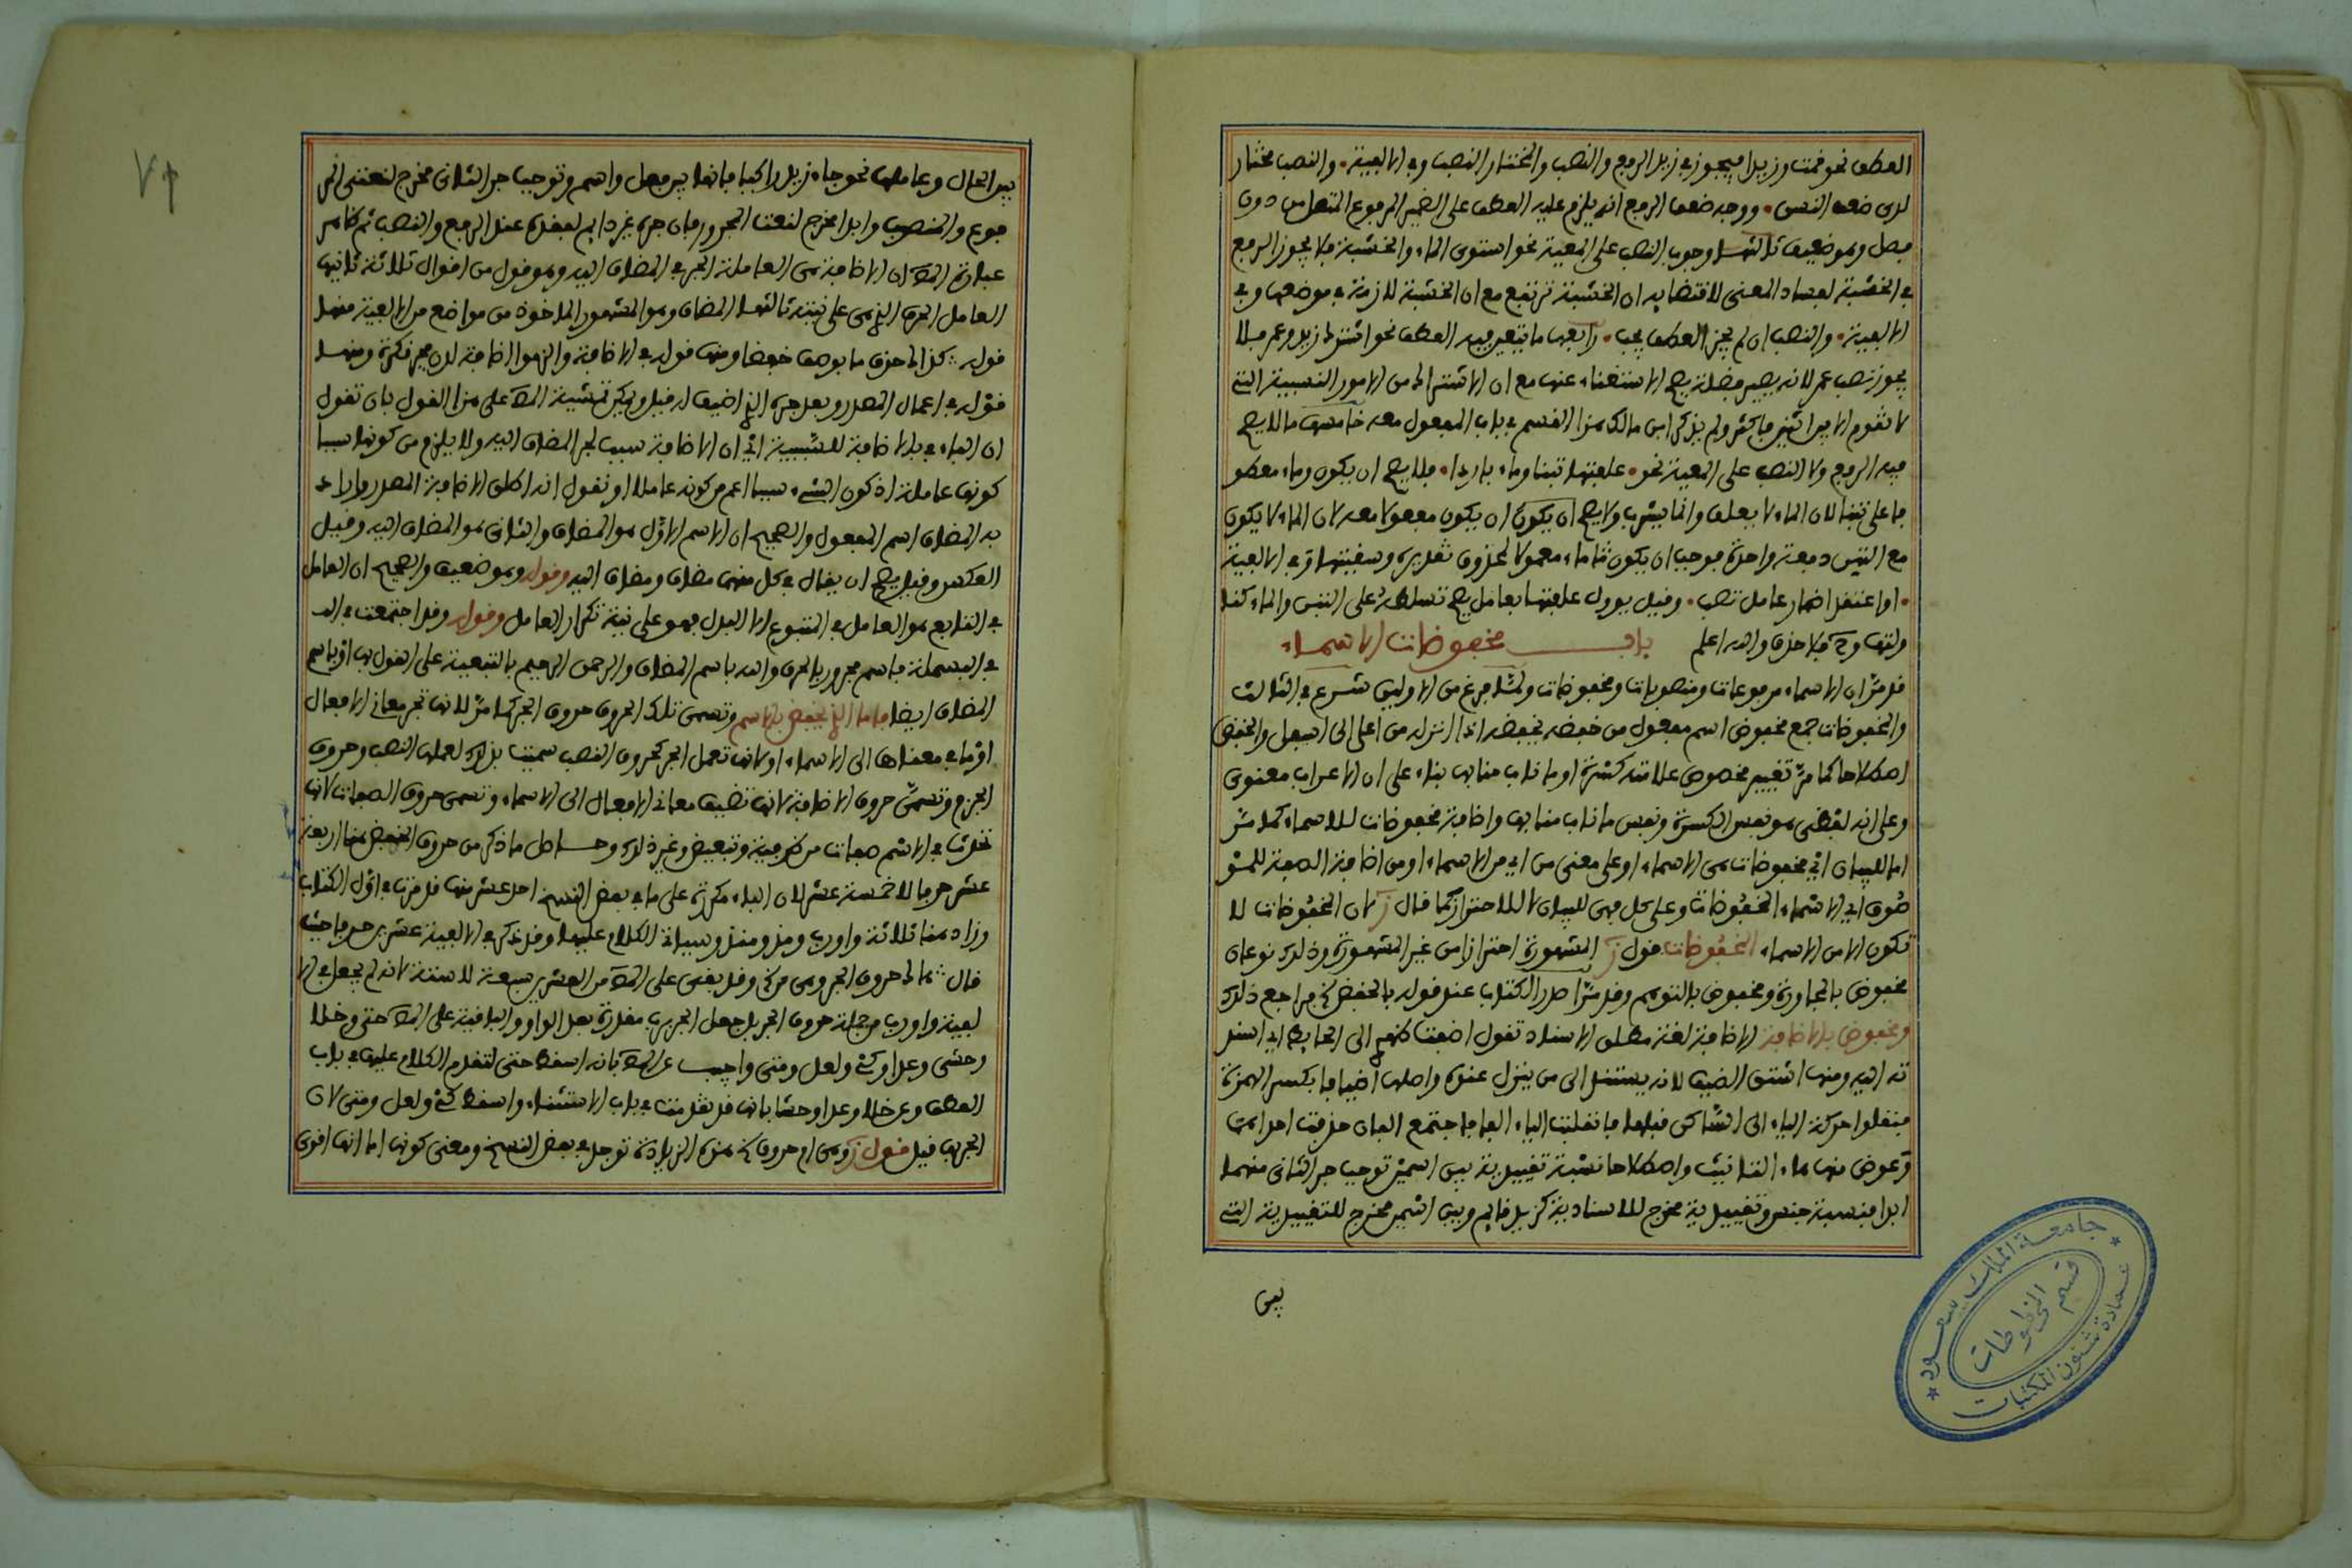 العطف نحو قمت وزيدا فيجوز في زيد الرفع والنصب والمختار النصب وفي الالفية • والنصب مختار
لدى ضعف النسق • ووجه ضعف الرفع انه يلزم عليه العطف على الضمير المرفوع المتصل من دون
فصل وهو ضعيف ثالثها وجوب النصب على المعية نحو استوى الماء والخشبة فلا يجوز الرفع
في الخشبة لفساد المعنى لاقتضايه ان الخشبة ترتفع مع ان الخشبة لازمة في موضعها وفي
الالفية • والنصب ان لم يجز العطف يجب • رابعها ما يتعين فيه العطف نحو اشترك زيد وعمر فلا
يجوز نصب عمر لانه يصير فضلة يصح الاستغناء عنها مع ان الاشتراك من الامور النسبية التي
لا تقوم الا بين اثنين فاكثر ولم يذكر ابن مالك هذا القسم في باب المفعول معه خامسها ما لا يصح
فيه الرفع ولا النصب على المعية نحو • علفتها تبنا وماء باردا • فلا يصح ان يكون وماء معطو
فا على تبنا لان الماء لا يعلف وانما يشرب ولا يصح ان يكون ان يكون مفعولا معه لان الماء لا يكون
مع التبن دفعة واحدة فوجب ان يكون ماء معمولا لمحذوف تقديره وسقيتها وفي الالفية
• او اعتقد اضمار عامل تصب • وقيل يوول علفتها بعامل يصح تسلطه على التبن والماء كنا
ولتها وح فلا حذف والله اعلم باب مخفوضات الاسماء
قد مر ان الاسماء مرفوعات ومنصوبات ومخفوضات ولما فرغ من الاولين شرع في الثالث
والمخفوضات جمع مخفوض اسم مفعول من خفضه يخفضه اذا انزله من اعلى الى اسفل والخفض
اصطلاحا كما مر تغيير مخصوص علامته كسرة او ما ناب منابها بناء على ان الاعراب معنوي
وعلى انه لفظي هو نفس الكسرة ونفس ما ناب منابها واضافة مخفوضات للاسماء كما مر
اما للبيان اي مخفوضات هي الاسماء او على معنى من اي من الاسماء او من اضافة الصفة للمو
صوف اي الاسماء المخفوضات وعلى كل فهي للبيان لا للاحتراز كما قال ز لان المخفوضات لا
تكون الا من الاسماء المخفوضات قول ز المشهورة احترازا من غير المشهورة وذلك نوعان
مخفوض بالمجاورة ومخفوض بالتوهم وقد مر اصدر الكتاب عند قوله بالخفض فراجع ذلك
ومخفوض بالاضافة الاضافة لغة مطلق الاسناد تقول اضفت ظهري الى الحايط اي اسند
ته اليه ومنها اشتق الضيف لانه يستند الى من ينزل عنده واصلها اضيافا بكسر الهمزة
فنقلوا حركة الياء الى الساكن قبلها فانقلبت الياء الفا فاجتمع الفان حذفت احداهما
وعوض منها هاء التانيث واصطلاحا نسبة تقييدية بين اسمين توجب جر الثاني منهما
ابدا فنسبة جنس وتقييدية مخرج للاسنادية كزيد قايم وبين اسمين مخرج للتقييدية التي
بين
بين الحال وعاملها نحو جاء زيد راكبا فانها بين فعل واسم وتوجب جر الثاني مخرج لنعتي المر
فوع والمنصوب وابدا مخرج لنعت المجرور فان جره غير دايم لفقده عند الرفع والنصب ثم ظاهر
عبارة المص ان الاضافة هي العاملة الجر في المضاف اليه وهو قول من اقوال ثلاثة ثانيها
العامل الحرف الذي هي على نيته ثالثها المضاف وهو المشهور الماخوذ من مواضع من الالفية منها
قوله كذاك حذف ما بوصف خفضا ومنها قوله في الاضافة والزموا اضافة لدن فجر فكرة ومنها
قوله في اعمال المصدر وبعد جره الذي اضيف له قيل ويمكن تمشية المص على هذا القول بان تقول
ان الباء في بالاضافة للسببية اي ان الاضافة سبب لجر المضاف اليه ولا يلزم من كونها سببا
كونها عاملة اذ كون الشيء سببا اعم من كونه عاملا او نقول انه اطلق الاضافة المصدر واراد
به المضاف اسم المفعول والصحيح ان الاسم الاول هو المضاف والثاني هو المضاف اليه وقيل
العكس وقيل يصح ان يقال في كل منهما مضاف ومضاف اليه وقوله وهو ضعيف والصحيح ان العامل
في التابع هو العامل في المتبوع الا البدل فهو على نية تكرار العامل وقوله وقد اجتمعت في الب
في البسملة فاسم مجرور بالحرف والله باسم المضاف والرحمن الرحيم بالتبعية على القول بها او باسم
المضاف ايضا فاما الذي يخفض بالاسم وتسمى تلك الحروف حروف الجر كما مر لانها تجر معاني الافعال
او ما في معناها الى الاسماء او لانها تعمل الجر كحروف النصب سميت بذلك لعملها النصب وحروف
الجزم وتسمى حروف الاضافة لانها تضيف معاني الافعال الى الاسماء وتسمى حروف الصفات لانها
تحدث في الاسم صفات من ظرفية وتبعيض وغير ذلك وحاصل ما ذكر من حروف الخفض هنا اربعة
عشر حرفا لا خمسة عشر لان الباء مكررة على ما في بعض النسخ احد عشر منها قد مرت في اول الكتاب
وزاد هنا ثلاثة واو رب ومذ ومنذ وسياتي الكلام عليها وقد ذكر في الالفية عشرين حرفا حيث
قال هاك حروف الجر وهي من الخ وقد بقي على المص من العشرين سبعة لا ستة لانه لم يجعل في الا
لفية واو رب من جملة حروف الجر بل جعل الجر برب مقدرة بعد الواو والباقية على المص حتى وخلا
وحشى وعدا وكي ولعل ومتى واجيب عن المص بانه اسقط حتى لتقدم الكلام عليها في باب
العطف وعن خلا وعدا وحشا بانها قد تقدمت في باب الاستثناء واسقط كي ولعل ومتى لان
الجر بها قيل قول ز وهي ام حروف الخ هذه الزيادة توجد في بعض النسخ ومعنى كونها اما انها اقوى
جامعة الملك سعود
قسم المخطوطات
عمادة شئون المكتبات